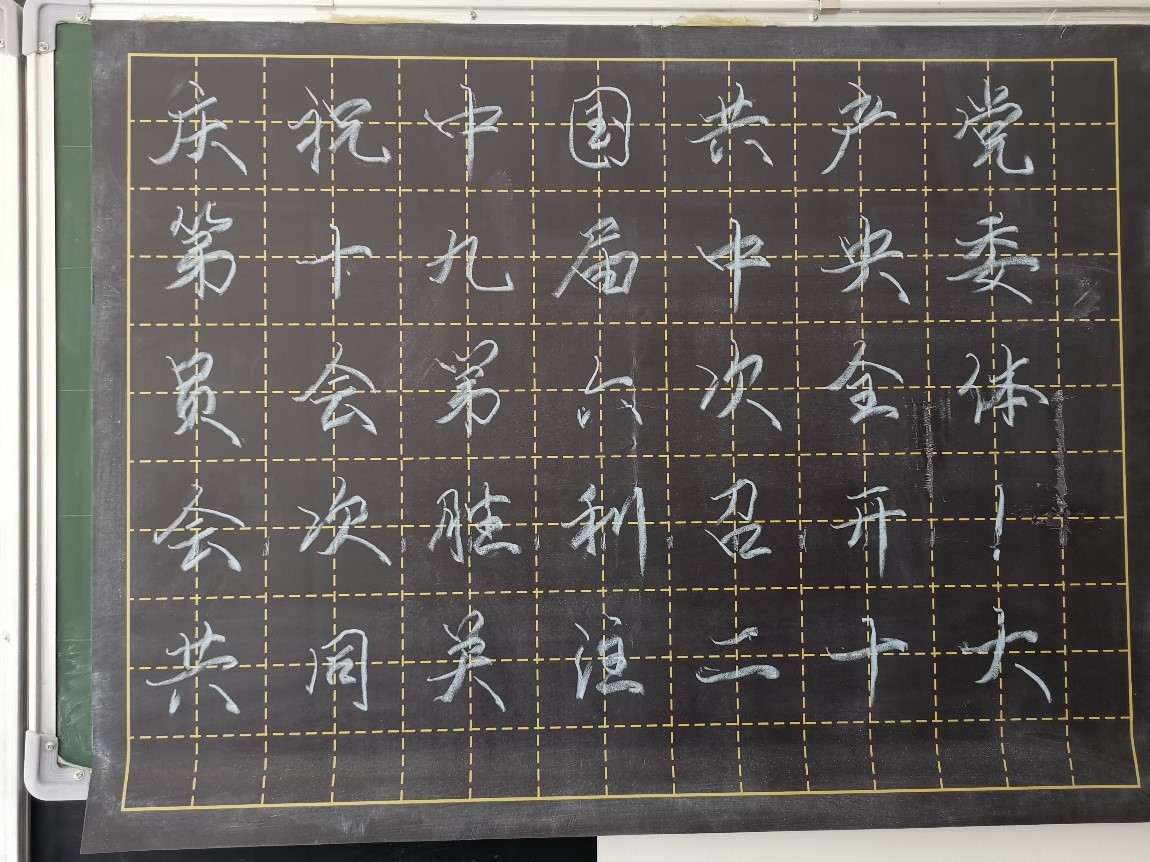 庆祝中国共产党
第十九届中央委
员会第六次全体
会次胜利召开!
共同关注二十大